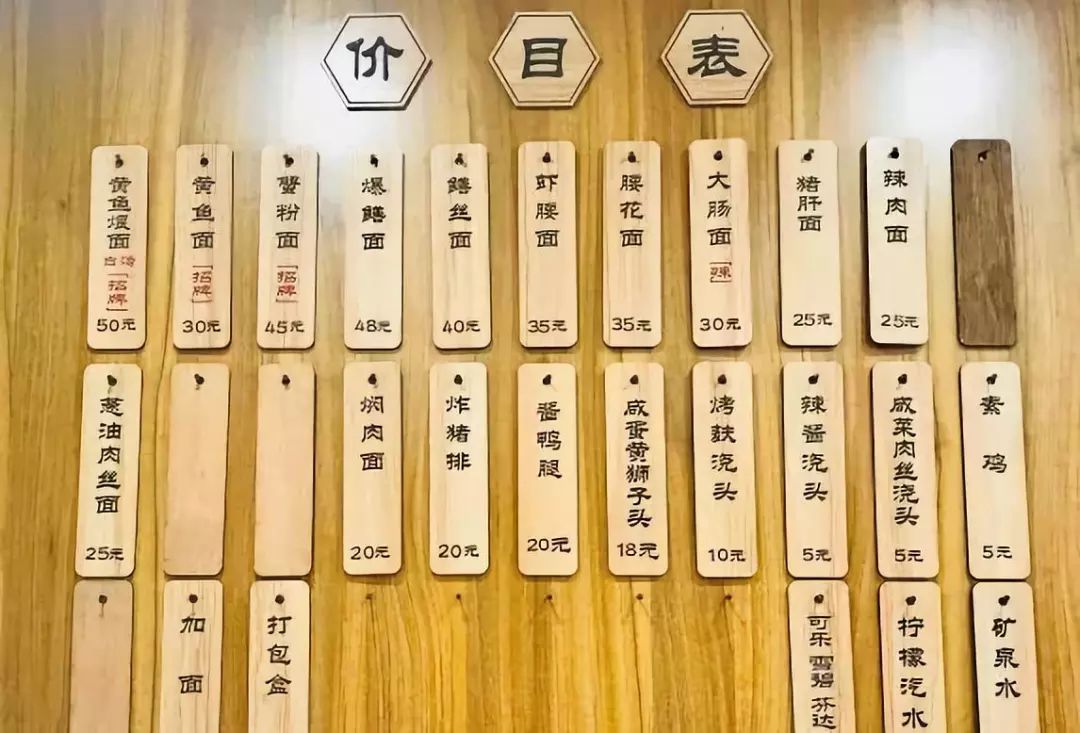 价目表
黄鱼煨面
白汤
「招牌」
50元
黄鱼面
「招牌」
30元
蟹粉面
「招牌」
45元
爆鳝面
48元
鳝丝面
40元
虾腰面
35元
腰花面
35元
大肠面
「辣」
30元
猪肝面
25元
辣肉面
25元
葱油肉丝面
25元
焖肉面
20元
炸猪排
20元
酱鸭腿
20元
咸蛋黄狮子头
18元
烤麸浇头
10元
辣酱浇头
5元
咸菜肉丝浇头
5元
素鸡
5元
加面
打包盒
可乐 雪碧 芬达
柠檬汽水
矿泉水